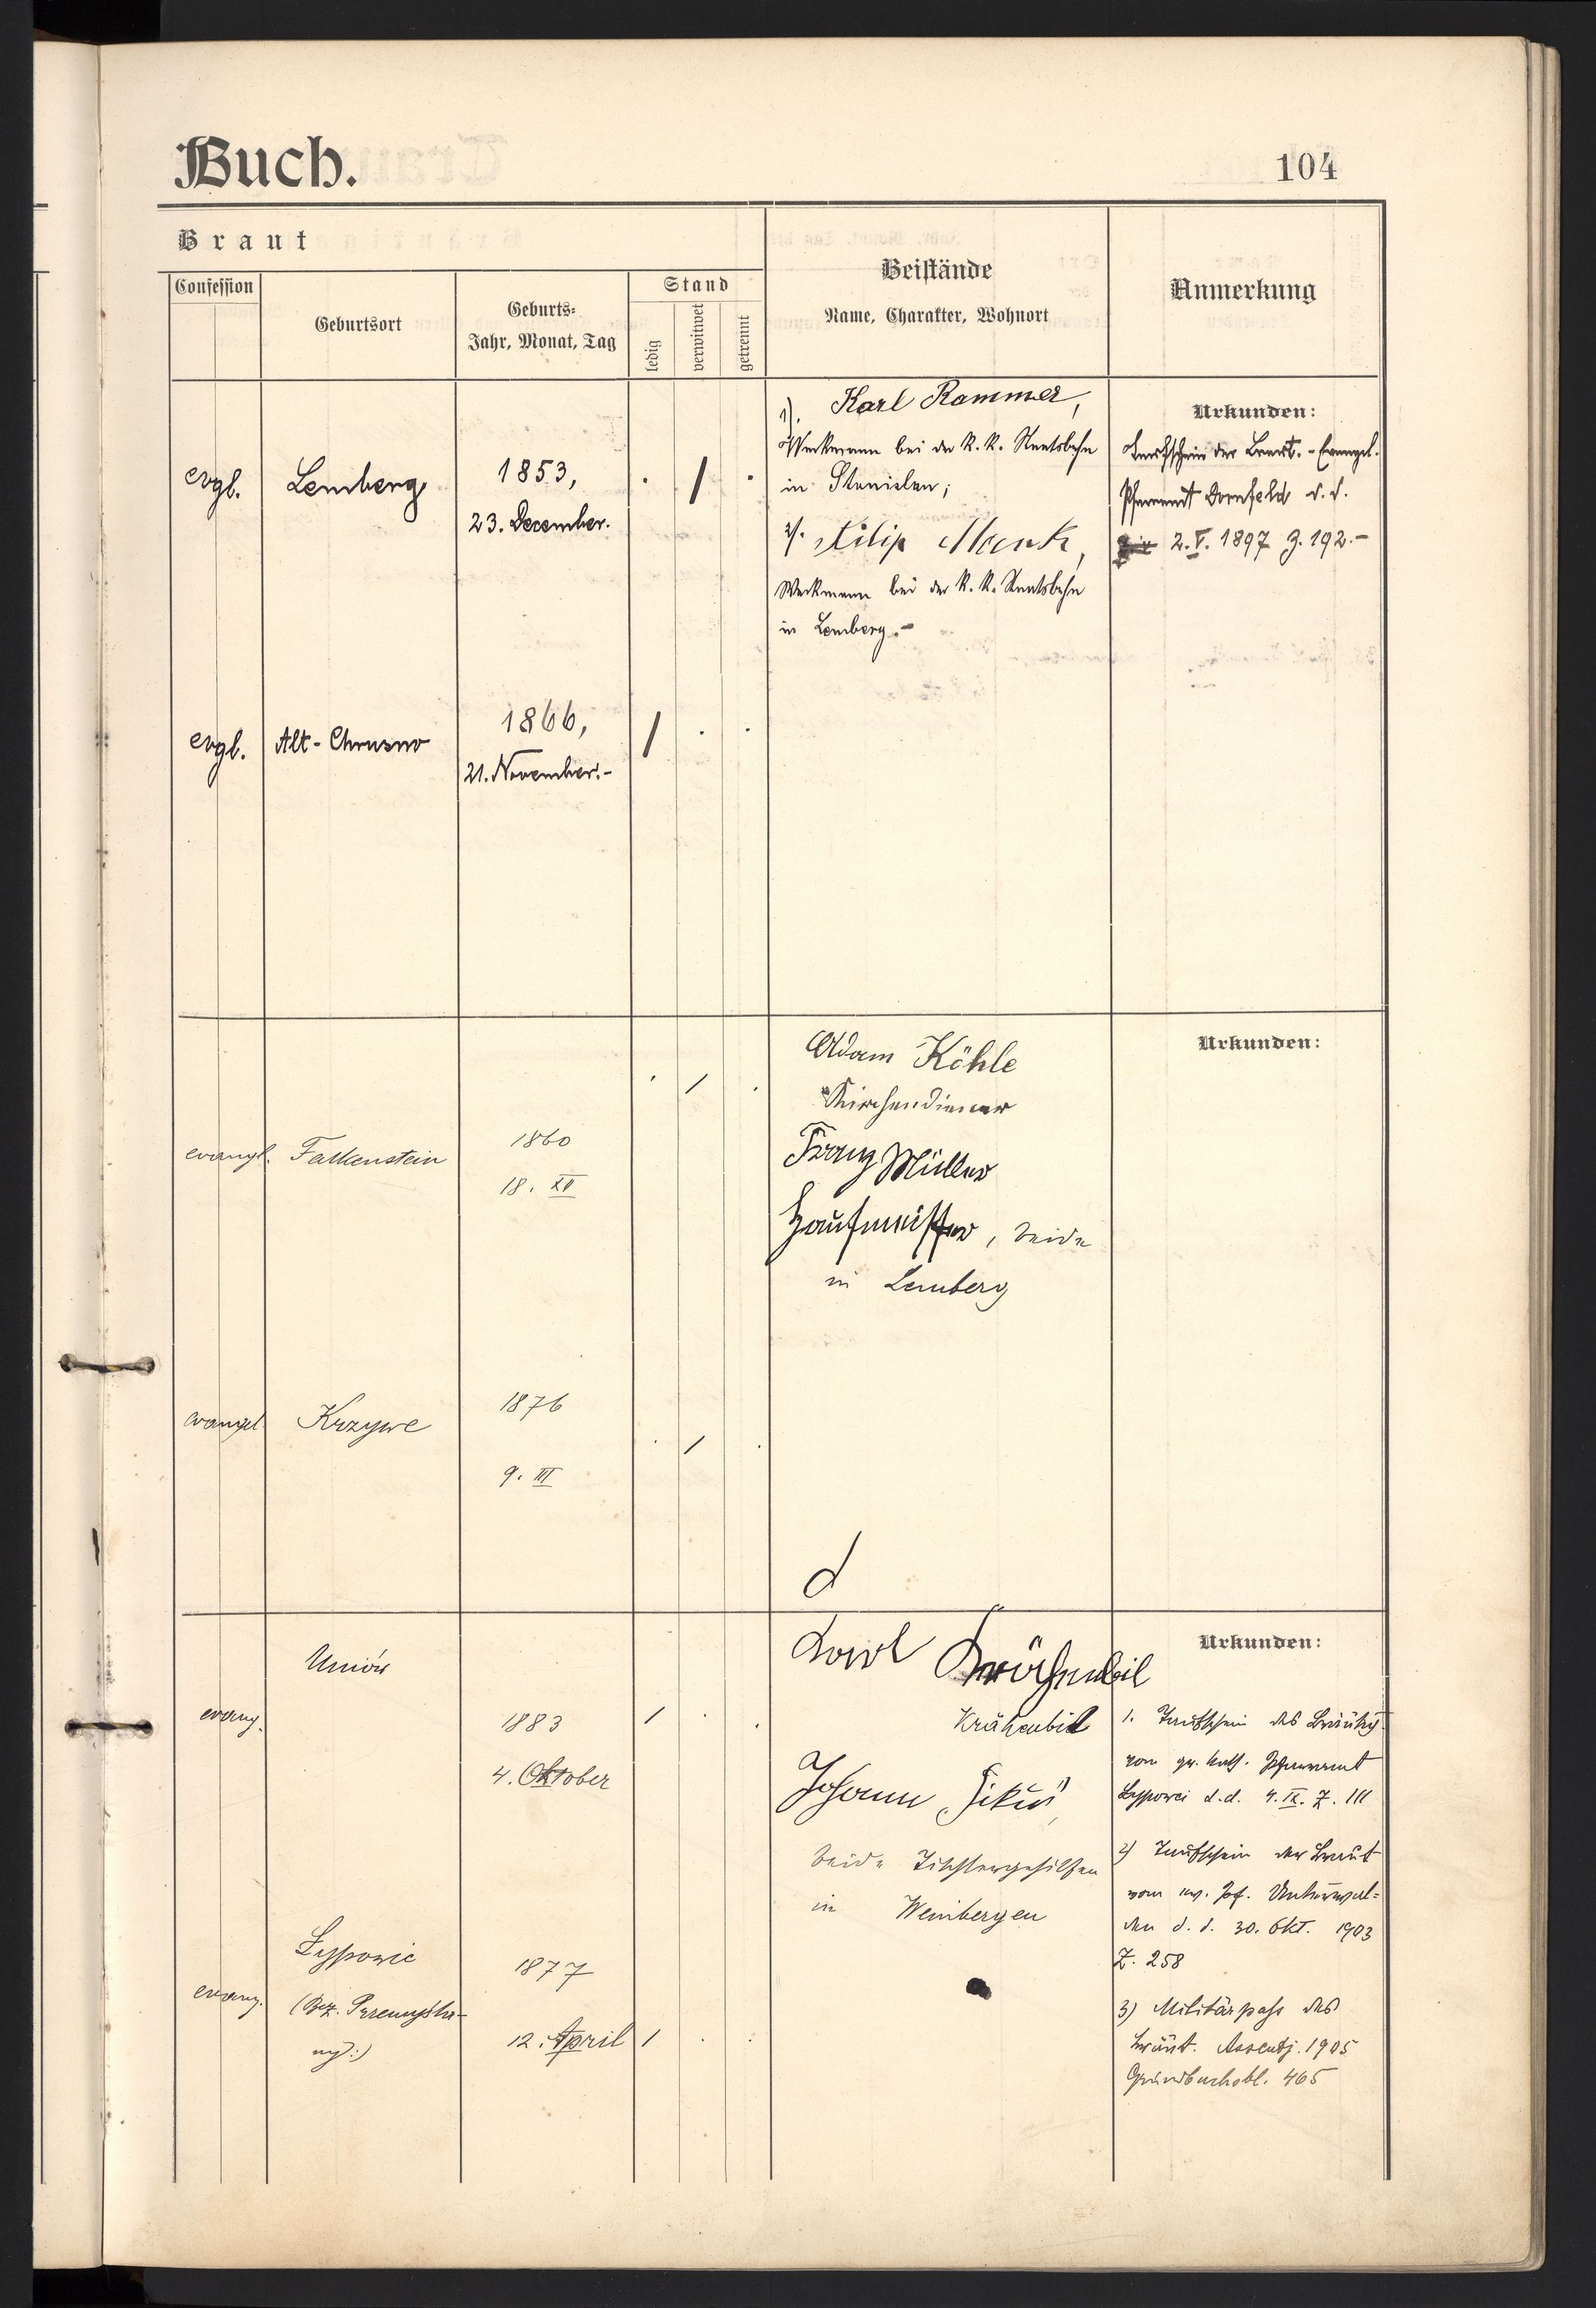 Buch.
104
Braut
Confession
Geburtsort
Geburts-
Jahr, Monat, Tag
Stand
ledig
verwitwet
getrennt
Beistände
Name, Charakter, Wohnort
Anmerkung
evgl.
Lemberg
1853,
23. December.
1). Karl Rammer,
Werkmann bei der K. K. Staatsbahn
in Stanislau;
2). Filip Mank,
Werkmann bei der K. K. Staatsbahn
in Lemberg.-
Urkunden:
Taufschein der Braut. - Evangel.
Pfarramt Dornfeld d. d.
2. V. 1897 Z. 192.-
evgl.
Alt-Chrusno
1866,
21. November.-
evangl.
Falkenstein
1860
18. XII
Adam Köhle
Kirchendiener
Franz Müller
Hausmeister, beide
in Lemberg
Urkunden:
evangel.
Krzywe
1876
9. III
Unioń
evang.
1883
4. Oktober
Karl Krähenbil
Krähenbil
Johann
beide Tischlergehilfen
in Weinbergen
Urkunden:
1. Taufschein des Bräutig.
vom gr. kath. Pfarramt
Lypowci d.d. 4. IX. Z. 111
2) Taufschein der Braut
vom ev. Pf. Unterwal-
den d. d. 30. Okt. 1903
Z. 258
3) Militärpass des
Bräut. Assentj. 1905
Grundbuchsbl. 465
evang.
Lypowic
(Bez. Przemyśla-
ny:)
1877
12. April